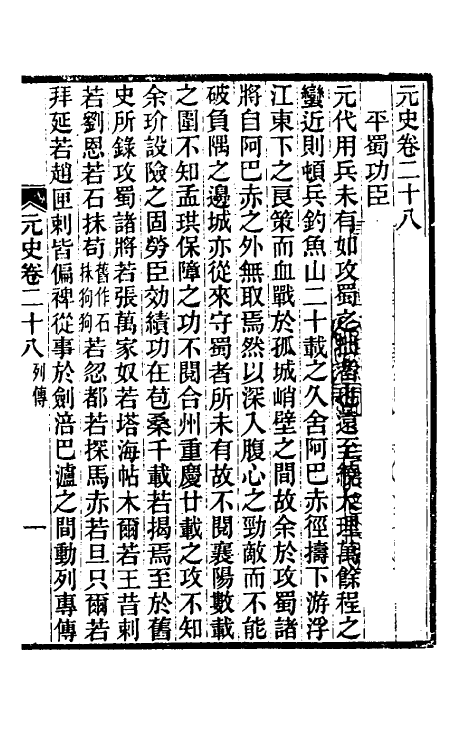 元史卷二十八
平蜀功臣
元代用兵未有如攻蜀之至繞大理萬餘程之
蠻近則頓兵釣魚山二十載之久舍阿巴赤徑擣下游浮
江東下之良策而血戰於孤城峭壁之間故余於攻蜀諸
將自阿巴赤之外無取焉然以深入腹心之勁敵而不能
破負隅之邊城亦從來守蜀者所未有故不閱襄陽數載
之圍不知孟珙保障之功不閱合州重慶廿載之攻不知
余玠設險之固勞臣効績功在苞桑千載若揭焉至於舊
史所錄攻蜀諸將若張萬家奴若塔海帖木爾若王昔剌
若劉恩若石抹苟舊作石抹狗狗若忽都若探馬赤若旦只爾若
拜延若趙匣剌皆偏裨從事於劍涪巴瀘之間動列專傳
元史卷二十八 列傳 一